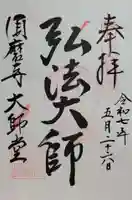 奉拝
令和七年
五月二十六日
弘法大師
大師堂